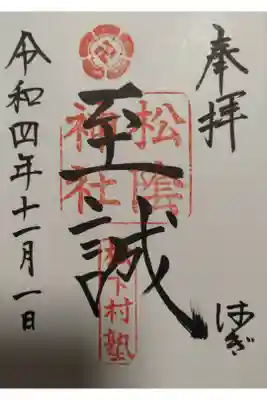 奉拝
はぎ
至誠
松陰
神社
松下村塾
令和四年十一月一日